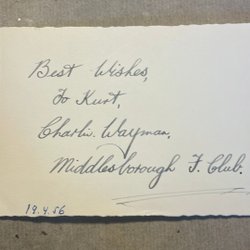 Best Wishes,
To Kurt,
Charlie Wayman,
Middlesborough F. Club.
19.4.56